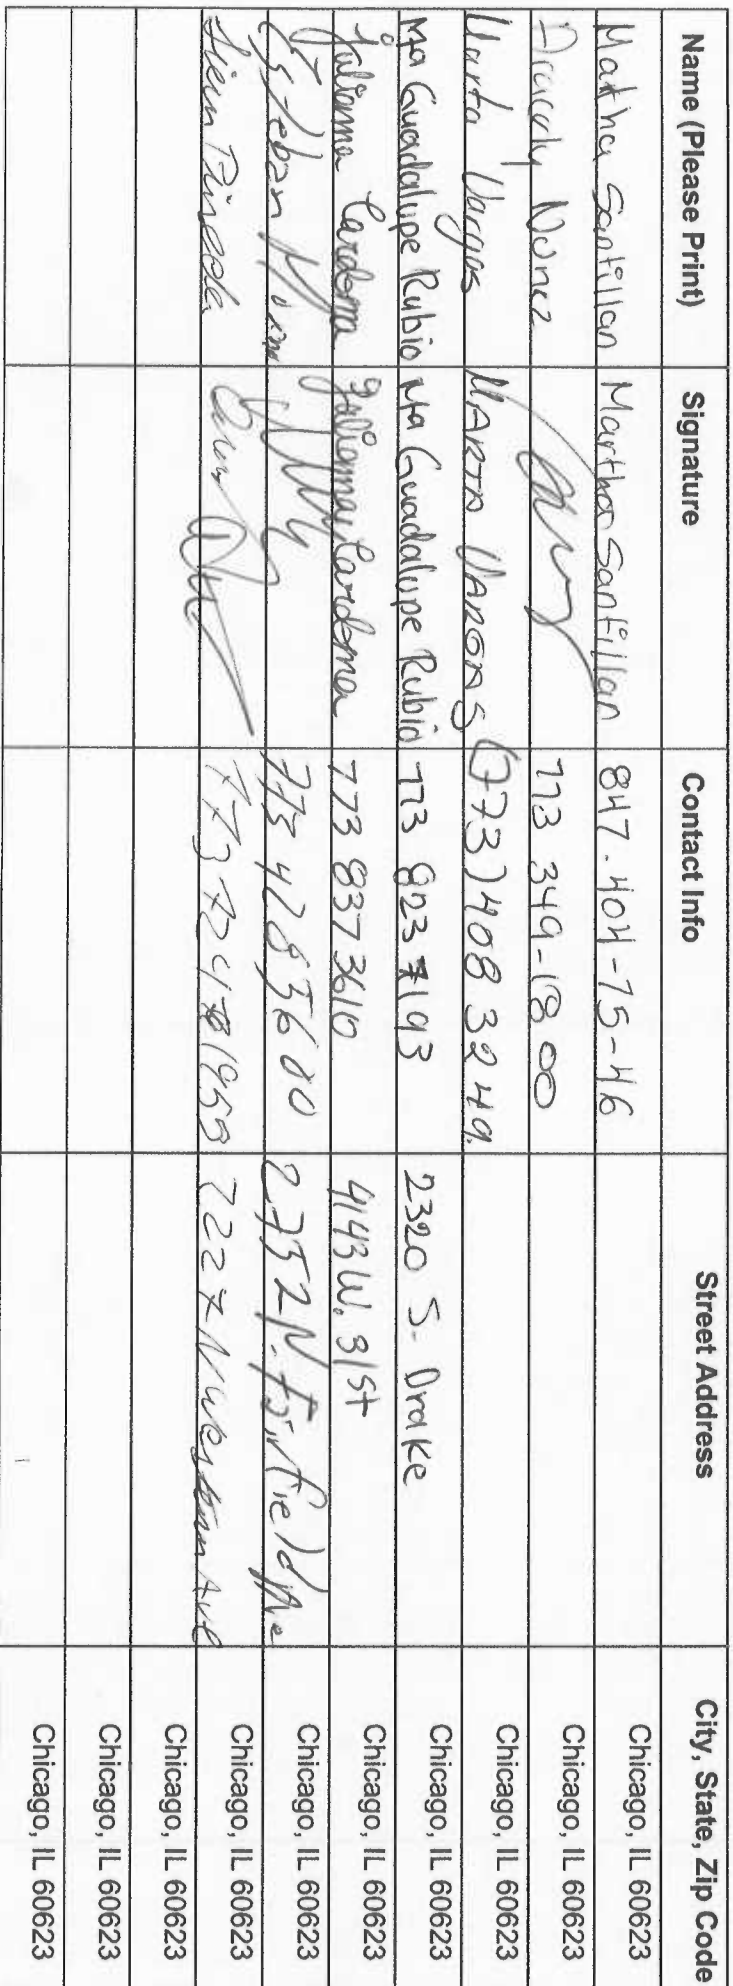 Name (Please Print) Signature Contact Info Street Address City, State, Zip Code
Martha Santillan Martha Santillan 847.404-75-46 Chicago, IL 60623
Aracely Nunez 773 349-18 00 Chicago, IL 60623
Marta Vargas MARTA VARGAS (773) 408 3249. Chicago, IL 60623
Ma Guadalupe Rubio Ma Guadalupe Rubio 773 823 7193 2320 S. Drake Chicago, IL 60623
Juliana Cardona Juliana Cardona 773 837 3610 4143 W. 31st Chicago, IL 60623
Esteban 773 428 5600 2752 N. Fairfield Ave Chicago, IL 60623
Pineda 2227 N Western Ave Chicago, IL 60623
Chicago, IL 60623
Chicago, IL 60623
Chicago, IL 60623